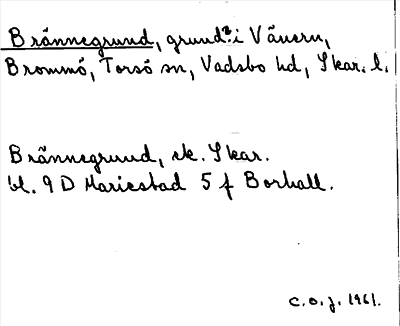 Brännegrund, grund? i Vänern,
Brommö, Torsö sn, Vadsbo hd, Skar. l.
Brännegrund, ek. Skar.
bl. 9 D Mariestad 5 f Borhall.
C.O.J. 1961.